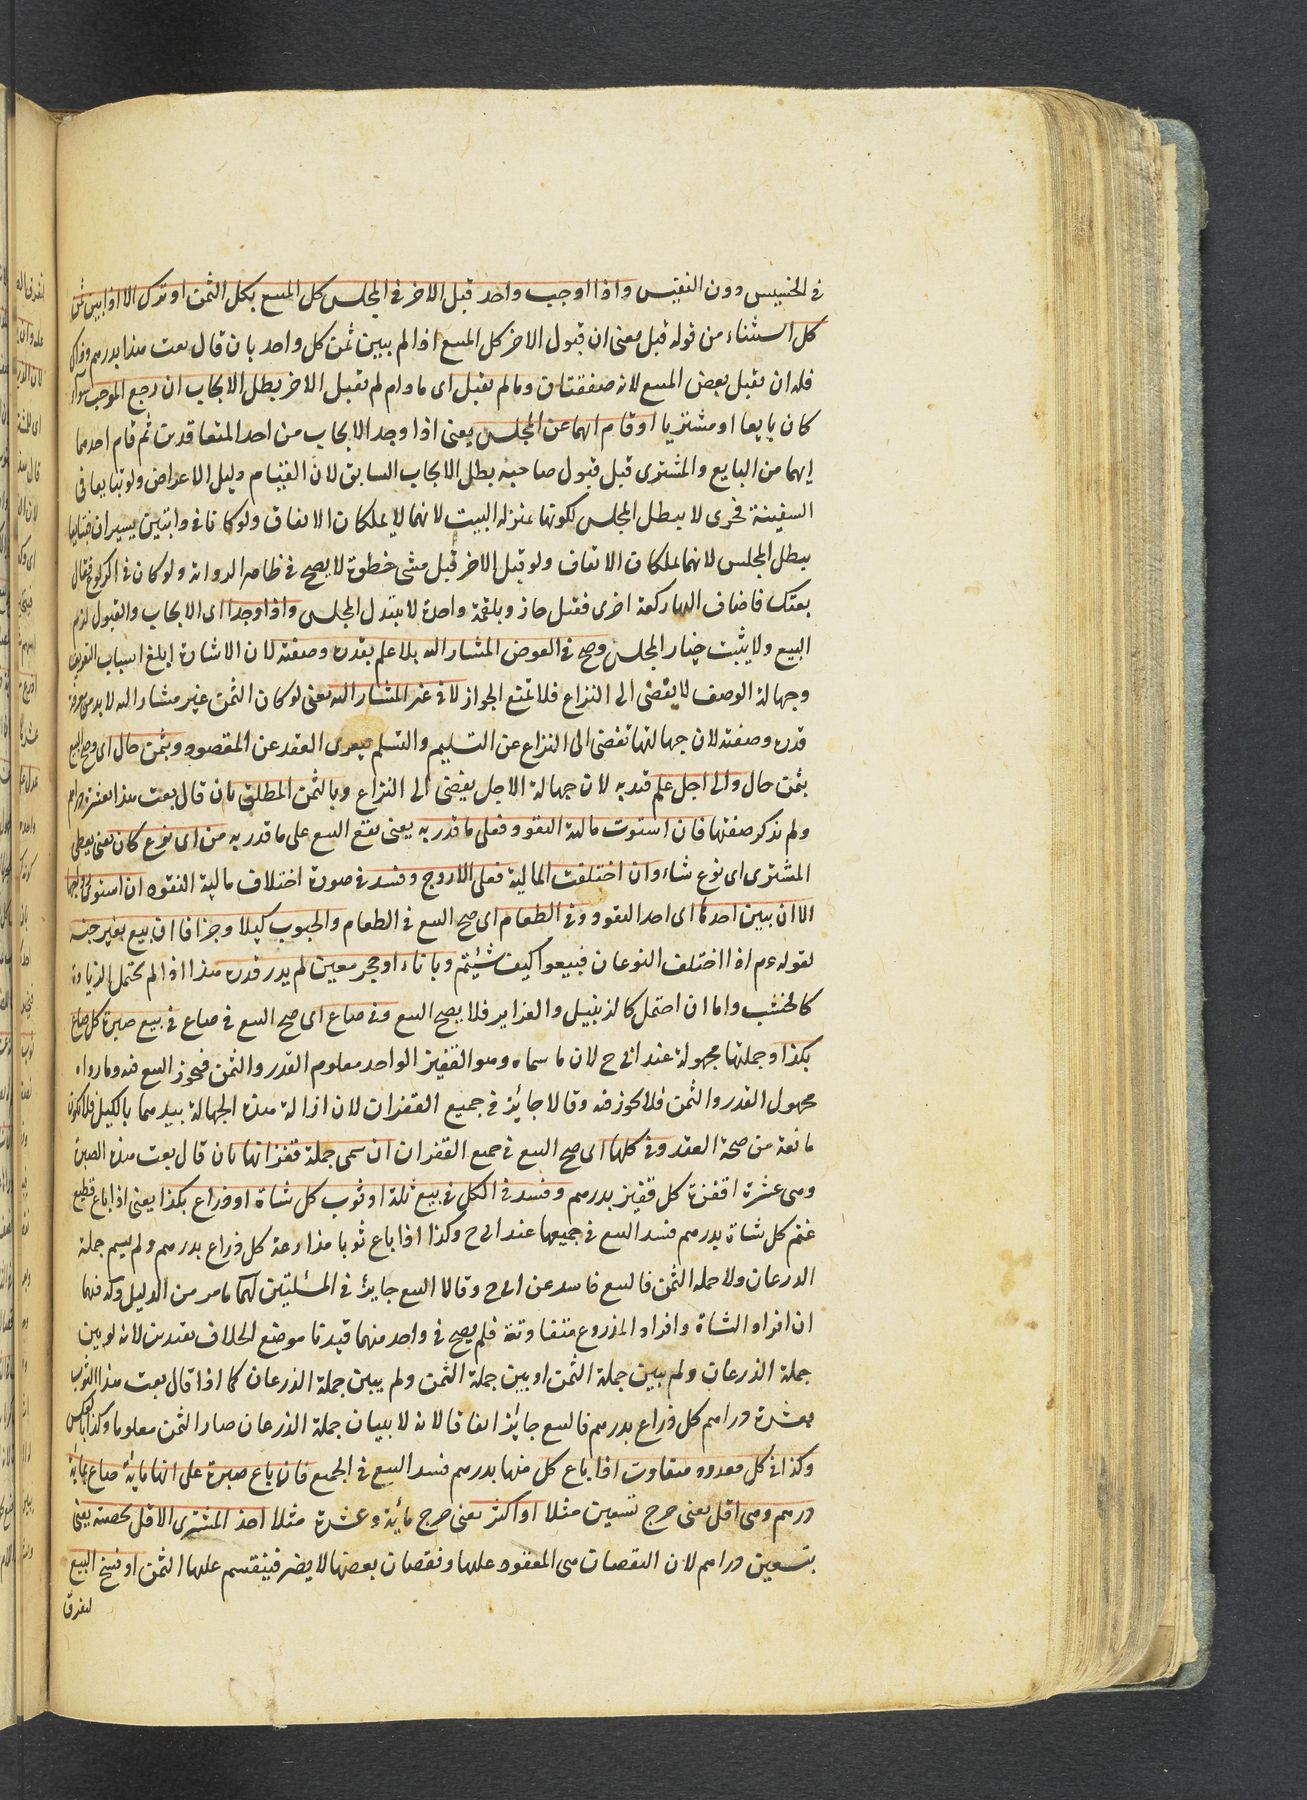 في الخسيس دون النفيس واذا اوجب واحد قبل الاخر في المجلس كل المبيع بكل الثمن او ترك الا اذا بين ثمن
كل استثناء من قوله قبل يعني ان قبول الاخر كل المبيع اذا لم يبين ثمن كل واحد بان قال بعت هذا بدرهم وذاك
فله ان يقبل بعض المبيع لانه صفقتان وما لم يقبل اي مادام لم يقبل الاخر بطل الايجاب ان رجع الموجب سواء
كان بايعا او مشتريا او قام ايهما عن المجلس يعني اذا وجد الايجاب من احد المتعاقدين ثم قام احدهما
ايهما من البايع والمشترى قبل قبول صاحبه بطل الايجاب السابق لان القيام دليل الاعراض ولو تبايعا في
السفينة تجرى لا يبطل المجلس لكونها بمنزلة البيت لانهما لا يملكان الايقاف ولو كانا في دابتين يسيران فتبايعا
يبطل المجلس لانهما يملكان الايقاف ولو قبل الاخر قبل مشى خطوة لا يصح في ظاهر الرواية ولو كان في الركوع فقال
بعتك فاضاف اليها ركعة اخرى فقبل جاز وبلقمة واحدة لا يتبدل المجلس واذا وجدا اي الايجاب والقبول لزم
البيع ولا يثبت خيار المجلس وصح في العوض المشار اليه بلا علم بقدره وصفته لان الاشارة ابلغ اسباب التعريف
وجهالة الوصف لا يفضى الى النزاع فلا تمنع الجواز لا في غير المشار اليه يعني لو كان الثمن غير مشار اليه لا بد من معرفة
قدره وصفته لان جهالتها تفضى الى النزاع عن التسليم والتسلم فيعرى العقد عن المقصود وبثمن حال اي وصح البيع
بثمن حال والى اجل علم قيد به لان جهالة الاجل يفضى الى النزاع وبالثمن المطلق بان قال بعت هذا بعشرة دراهم
ولم يذكر صفتها فان استوت مالية النقود فعلى ما قدر به يعني يقع البيع على ما قدر به من اي نوع كان يعني يعطى
المشترى اي نوع شاء وان اختلفت المالية فعلى الاروج وفسد في صورة اختلاف مالية النقود ان استوى رواجها
الا ان يبين احدها اي احد النقود وفي الطعام اي صح البيع في الطعام والحبوب كيلا وجزافا ان بيع بغير جنسه
لقوله عم اذا اختلف النوعان فبيعوا كيف شيئتم وباناء او حجر معين لم يدر قدره هذا اذا لم يحتمل الزيادة
كالخشب واما ان احتمل كالزنبيل والغزاير فلا يصح البيع وفي صاع اي صح البيع في صاع في بيع صبرة كل صاع
بكذا وجملتها مجهولة عند ابي ح لان ما سماه وهو القفيز الواحد معلوم القدر والثمن فيجوز البيع فيه وما وراءه
مجهول القدر والثمن فلا يجوز فيه وقالا جائز في جميع القفزان لان ازالة هذه الجهالة بيدهما بالكيل فلا تكون
مانعة من صحة العقد وفي كلها اي صح البيع في جميع القفزان ان سمى جملة قفزانها بان قال بعت هذه الصبرة
وهي عشرة اقفزة كل قفيز بدرهم وفسد في الكل في بيع ثلة او ثوب كل شاة او ذراع بكذا يعني اذا باع قطيع
غنم كل شاة بدرهم فسد البيع في جميعها عند ابي ح وكذا اذا باع ثوبا مذارعة كل ذراع بدرهم ولم يسم جملة
الذرعان ولا جملة الثمن فالبيع فاسد عن ابي ح وقالا البيع جايز في المسئلتين لهما ما مر من الدليل وله فيهما
ان افراد الشاة وافراد المذروع متفاوتة فلم يصح في واحد منهما قيدنا موضع الخلاف بقيدين لانه لو بين
جملة الذرعان ولم يبين جملة الثمن او بين جملة الثمن ولم يبين جملة الذرعان كما اذا قال بعت هذا الثوب
بعشرة دراهم كل ذراع بدرهم فالبيع جايز اتفاقا لانه لا ببيان جملة الذرعان صار الثمن معلوما وكذا بالعكس
وكذا في كل معدود متفاوت اذا باع كل منها بدرهم فسد البيع في الجميع فان باع صبرة على انها ماية صاع بماية
درهم وهي اقل يعني خرج تسعين مثلا او اكثر يعني خرج ماية وعشرة مثلا اخذ المشترى الاقل بحصته يعني
بتسعين دراهم لان النقصان هي المعقود عليها ونقصان بعضها لا يضر فينقسم عليها الثمن او فسخ البيع
لتفرق